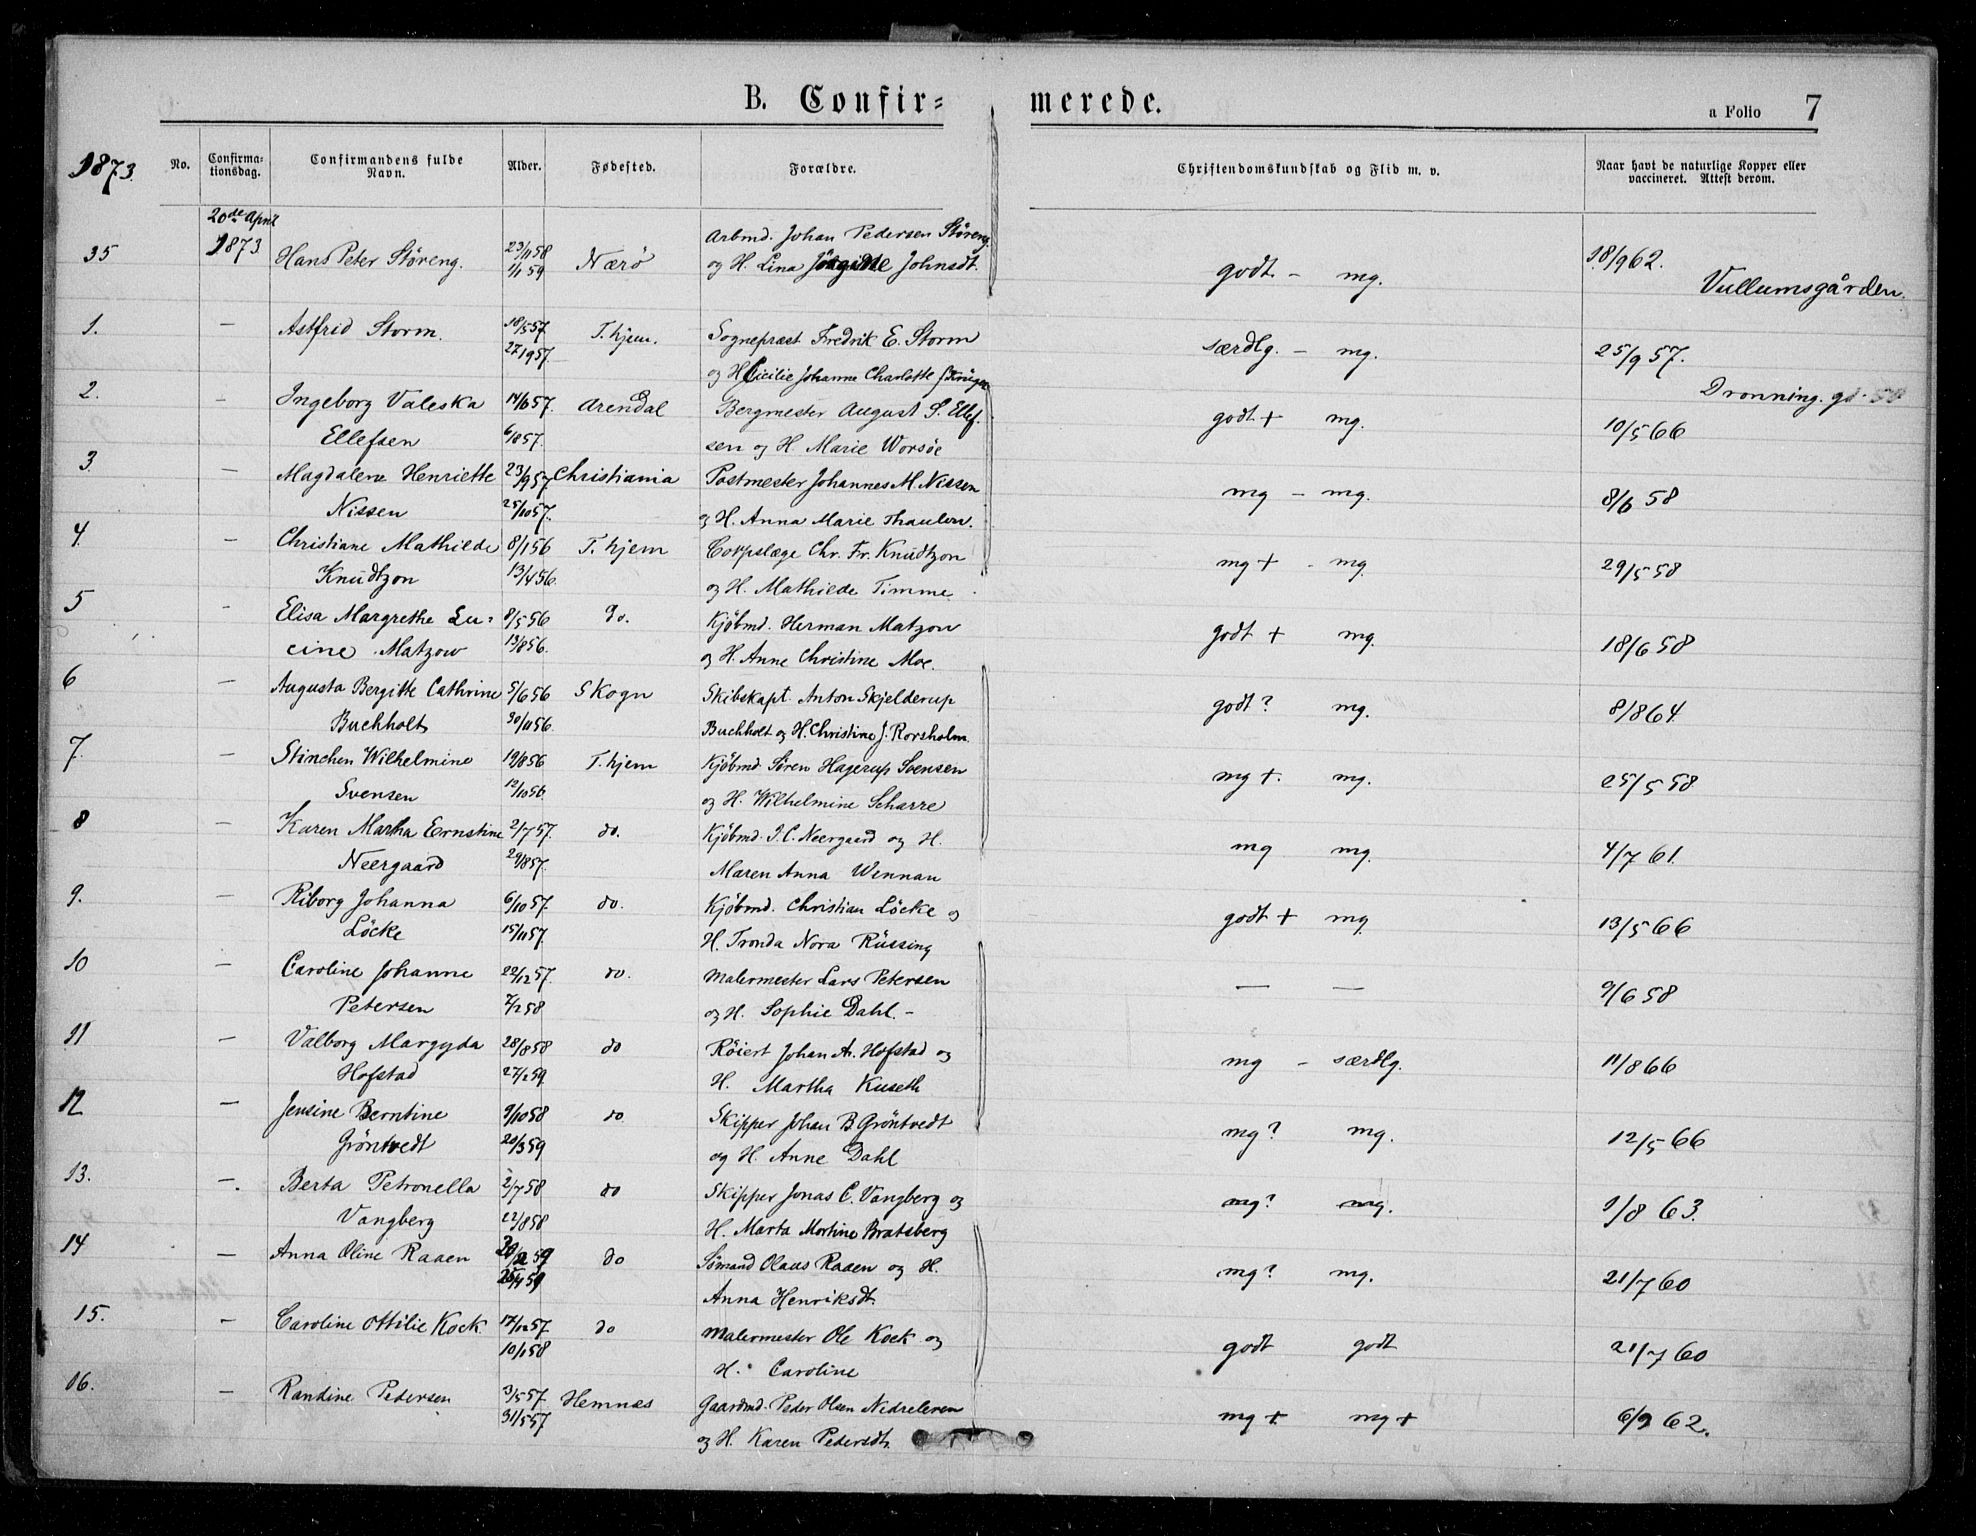 B. Confir=merede.
a Folio 7
1873.
No. Confirma-tionsdag. Confirmandens fulde Navn. Alder. Fødested. Forældre. Christendomskundskab og Flid m. v. Naar havt de naturlige Kopper eller vaccineret. Attest derom.
20de April 1873
35 Hans Peter Störeng. 23/11 58 1/1 59 Nærö Arbmd. Johan Pedersen Störeng.
og H. Lina Johnsdt. godt. – mg. 18/9 62.
Vullumsgården.
1. — Astfrid Storm. 18/5 57 27/9 57. T.hjem. Sognepræst Fredrik E. Storm særdlg. – mg. 25/9 57.
og H. Cicilie Johanne Charlotte f. Krüger
Dronning. gd.
2. Ingeborg Valeska 14/6 57. Arendal Bergmester August S. Ellef. godt + mg. 10/5 66
Ellefsen 6/8 57. sen og H. Marie Worsöe
3. — Magdalene Henriette 23/9 57 Christiania Postmester Johannes M. Nissen mg – mg. 8/6 58
Nissen 25/10 57. og H. Anna Marie Thaulow.
4. — Christiane Mathilde 8/1 56 T. hjem Corpslæge Chr. Fr. Knudtzon mg + - mg. 29/5 58
Knudtzon 13/4 56. og H. Mathilde Timme.
5 - Elisa Margrethe Lu- 8/5 56 do. Kjöbmd. Herman Matzow godt + mg. 18/6 58
cine Matzow 13/8 56. og H. Anne Christine Moe.
6 — Augusta Bergitte Cathrine 5/6 56 Skogn Skibskapt. Anton Skjelderup godt? mg. 8/8 64.
Buchholt 30/11 56. Buchholt og H. Christine J. Rorsholm.
7. — Stinchen Wilhelmine 19/8 56 T. hjem Kjöbmd. Sören Hagerup Svensen mg +. mg. 25/5 58
Svensen 12/10 56. og H. Wilhelmine Scharre
8 — Karen Martha Ernstine 2/7 57. do. Kjöbmd. I. C. Neergaard og H. mg mg. 4/7 61.
Neergaard 29/8 57. Maren Anna Wennau
9. — Riborg Johanna 6/10 57. do. Kjöbmd. Christian Löcke og godt + mg. 13/5 66
Löcke 15/11 57. H. Tronda Nora Rüssing
10 — Caroline Johanne 22/12 57. do. Malermester Lars Petersen — — 9/6 58
Petersen 7/2 58 og H. Sophie Dahl. –
11 — Valborg Margyda 28/8 58 do Röiert Johan A. Hofstad og mg – særdlg. 11/8 66
Hofstad 27/2 59. H. Martha Kuseth
12 — Jensine Berntine 9/10 58 do Skipper Johan B. Gröntvedt mg? mg. 12/5 66
Gröntvedt 20/3 59 og H. Anne Dahl
13. —. Berta Petronella 2/7 58 do Skipper Jonas C. Vangberg og mg? mg. 9/8 63.
Vangberg 22/8 58 H. Marta Martine Bratsberg
14 — Anna Oline Raaen 59 do Sømand Olaus Raaen og H. mg? mg. 21/7 60
59 Anna Henriksdt.
15. — Caroline Ottilie Kock 17/12 57. do Malermester Ole Kock og godt godt 21/7 60
10/1 58 H. Caroline
16. — Randine Pedersen 3/5 57. Hemnæs Gaardmd. Peder Olsen Nedreleren mg + mg + 6/9 62.
31/5 57 og H. Karen Pedersdt.